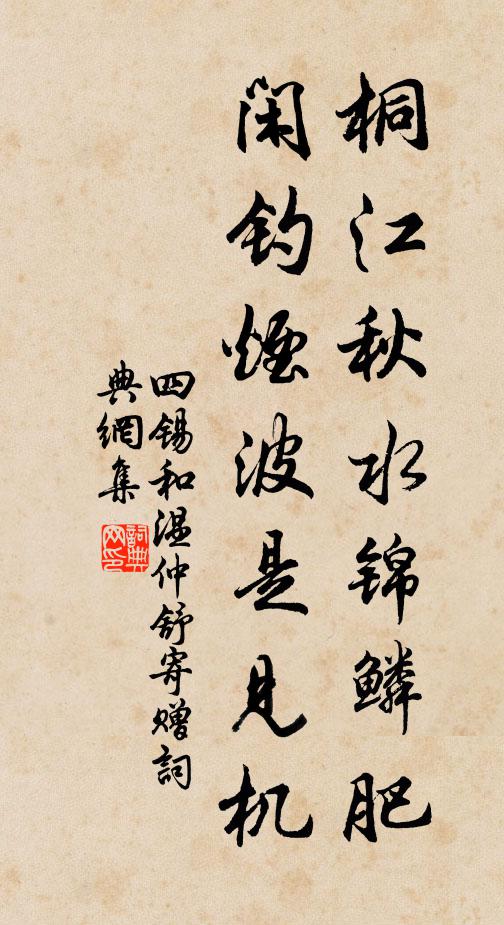 桐江秋水锦鳞肥
闲钓烟波是见机
四锡和温仲舒寄赠詞
典網集
詞典网印